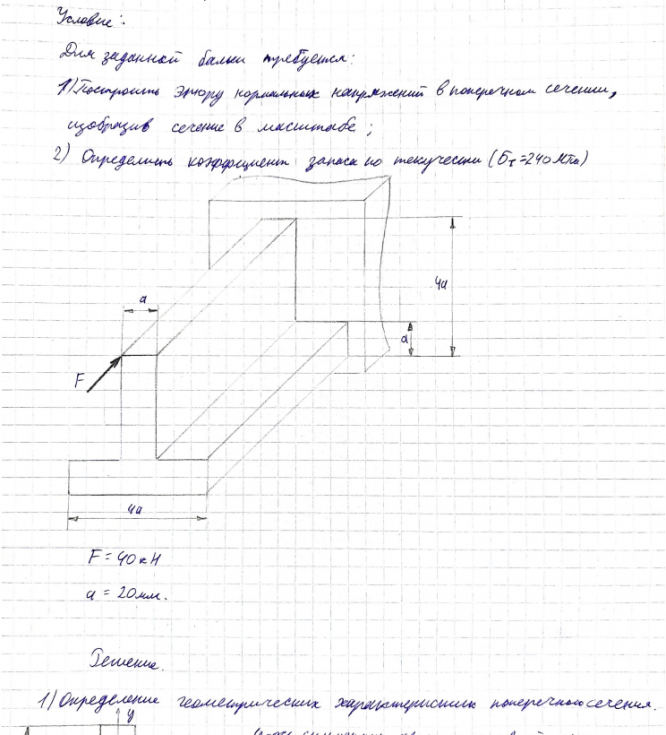 Условие:
Для заданной балки требуется:
1) Построить эпюру нормальных напряжений в поперечном сечении,
изобразив сечение в масштабе;
2) Определить коэффициент запаса по текучести (σт=240 МПа)
4a
a
a
F
4a
F = 40 кН
a = 20 мм.
Решение.
1) Определение геометрических характеристик поперечного сечения.
y